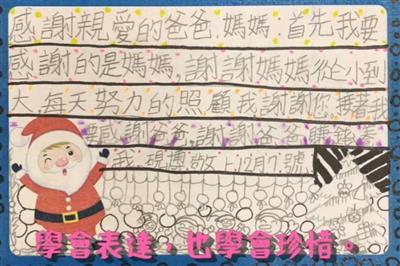 感謝親愛的爸爸媽媽:首先我要
感謝的是媽媽,謝謝媽媽從小到
大每天努力的照顧我,謝謝你。接著我
要感謝爸爸,謝謝爸爸賺錢養
我。碩博敬上12月7號
學會表達,也學會珍惜。